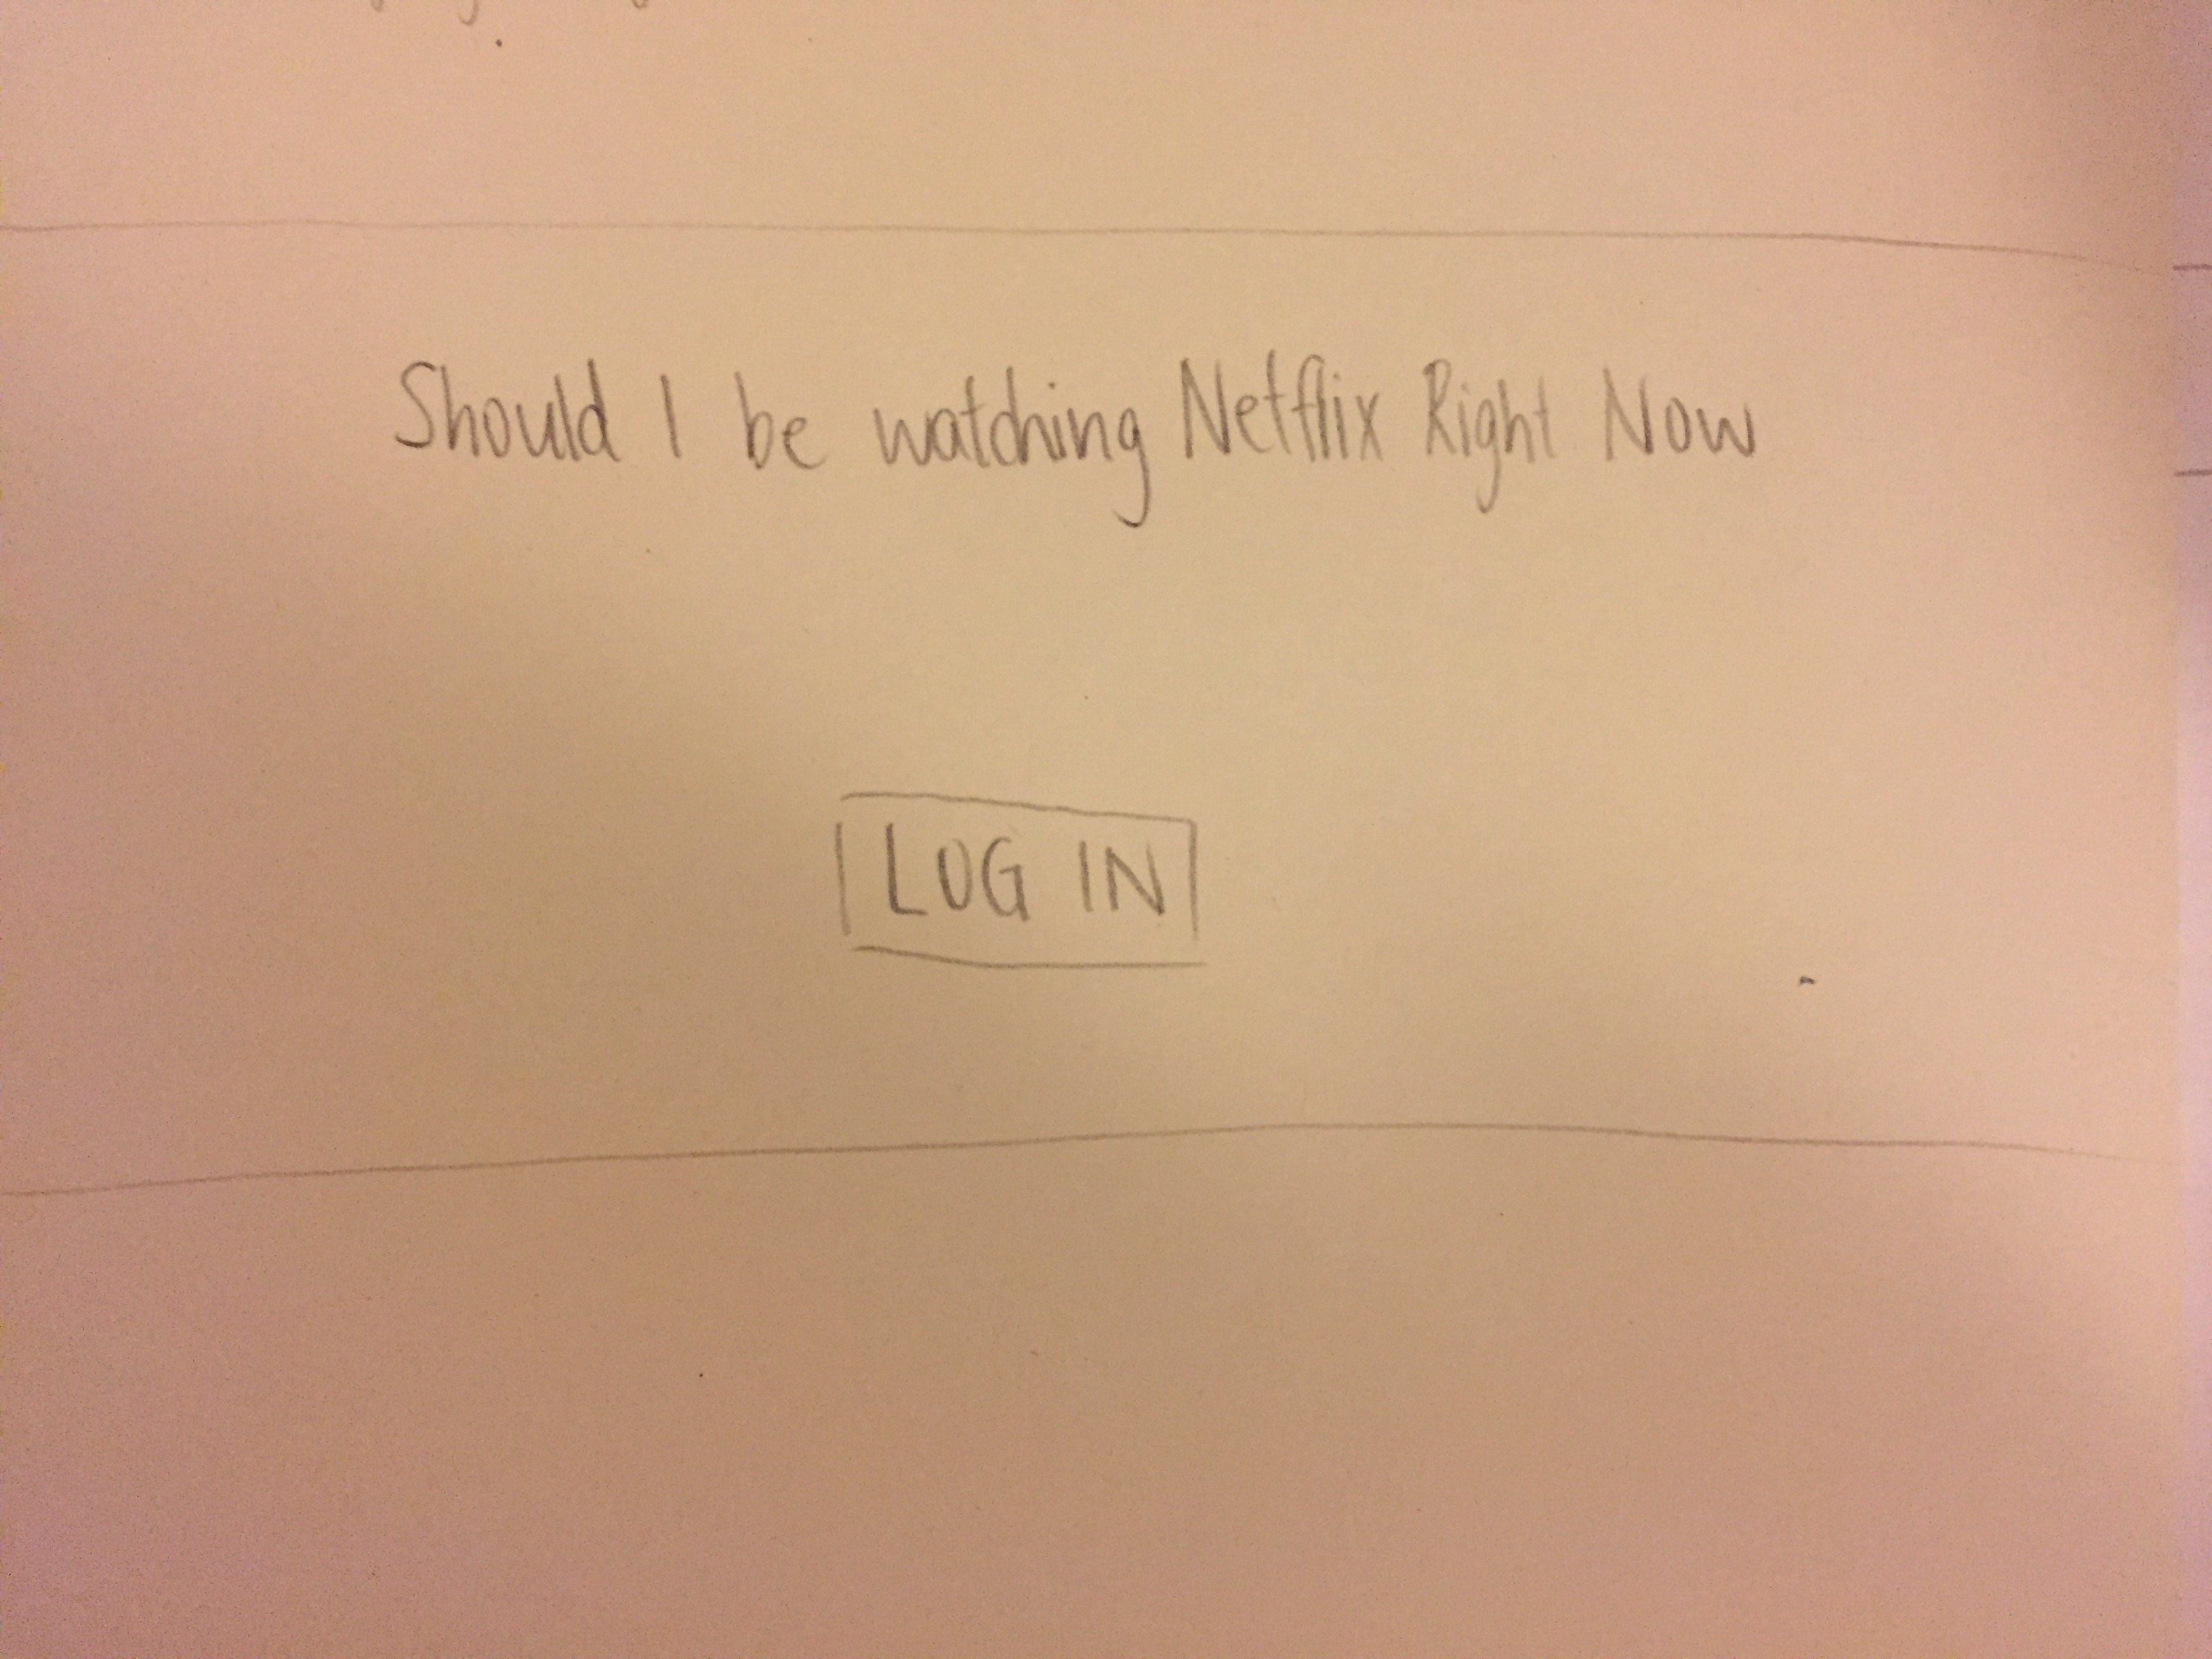 Should I be watching Netflix Right Now
LOG IN